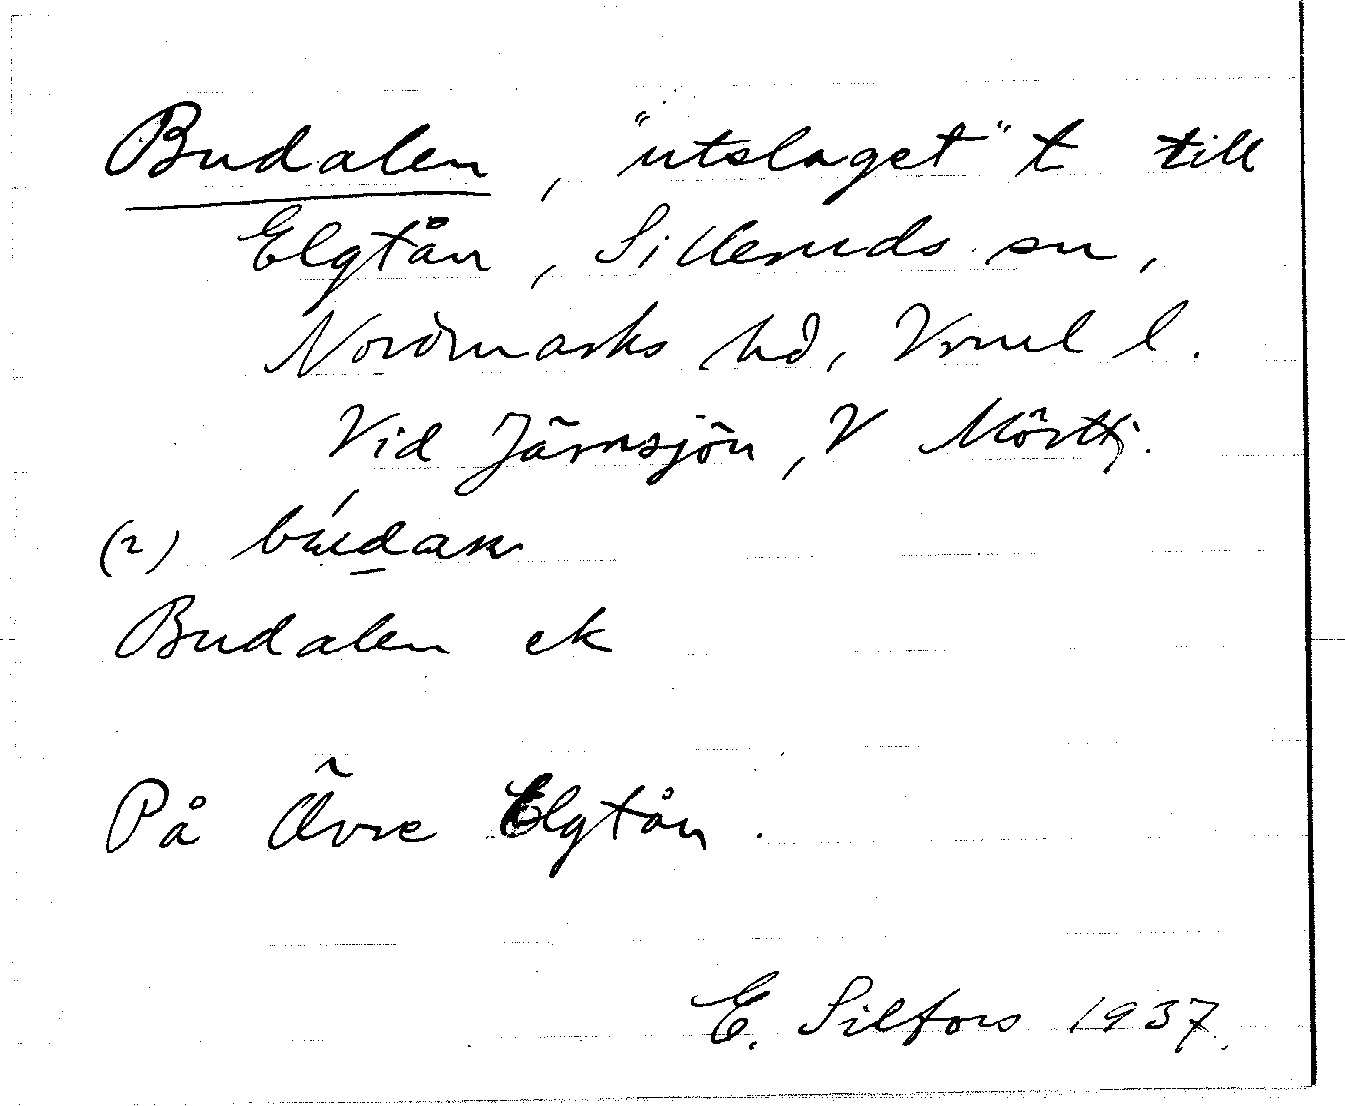 Budalen, "utslaget" t till
Elgtån, Silleruds sn,
Nordmarks hd, Vrml l.
Vid Järnsjön, V Mörttj.
(2) búdan
Budalen ek
På Övre Elgtån.
E. Silfors 1937.